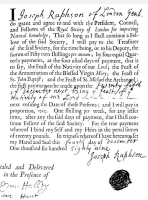 I Joseph Raphson of London Gent
do grant and agree to and with the President, Council,
and Fellows of the Royal Society of London for improving
Natural knowledge, That so long as I shall continue a Fel-
low of the said Society, I will pay to the Treasurer
of the said Society, for the time being, or to his Deputy, the
summ of fifty two shillings per annum, by four equal Quar-
terly payments, at the four usual days of payment, that is
to say, the Feast of the Nativity of our Lord, the Feast of
the Annunciation of the Blessed Virgin Mary, the Feast of
St. John Baptist, and the Feast of St. Michael the Archangel,
the first payment to be made upon the
next ensuing the Date of these Presents; and I will pay in
proportion, viz. One shilling per week, for any lesser
time, after any the said days of payment, that I shall con-
tinue Fellow of the said Society. For the true payment
whereof I bind my self and my Heirs in the penal summ
of twenty pounds. In witness whereof I have hereunto set
my Hand and Seal this fourth day of December
one thousand six hundred eighty nine
Joseph Raphson
Sealed and Delivered
in the Presence of